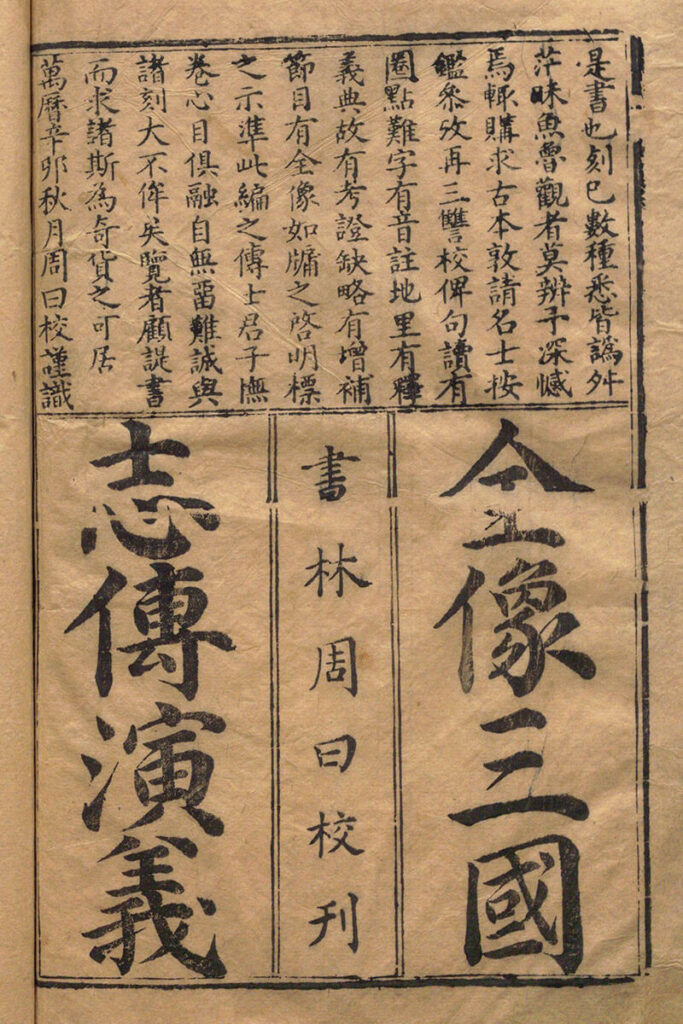 是書也刻已數種悉皆譌舛
茫昧魚魯觀者莫辨予深憾
焉輒購求古本敦請名士按
鑑參攷再三讐校俾句讀有
圈點難字有音註地里有釋
義典故有考證缺略有增補
節目有全像如牖之啓明標
之示準此編之傳士君子撫
卷心目俱融自無留難誠與
諸刻大不侔矣覽者顧諟書
而求諸斯為奇貨之可居
萬曆辛卯秋月周曰校謹識
全像三國
書林周曰校刊
志傳演義